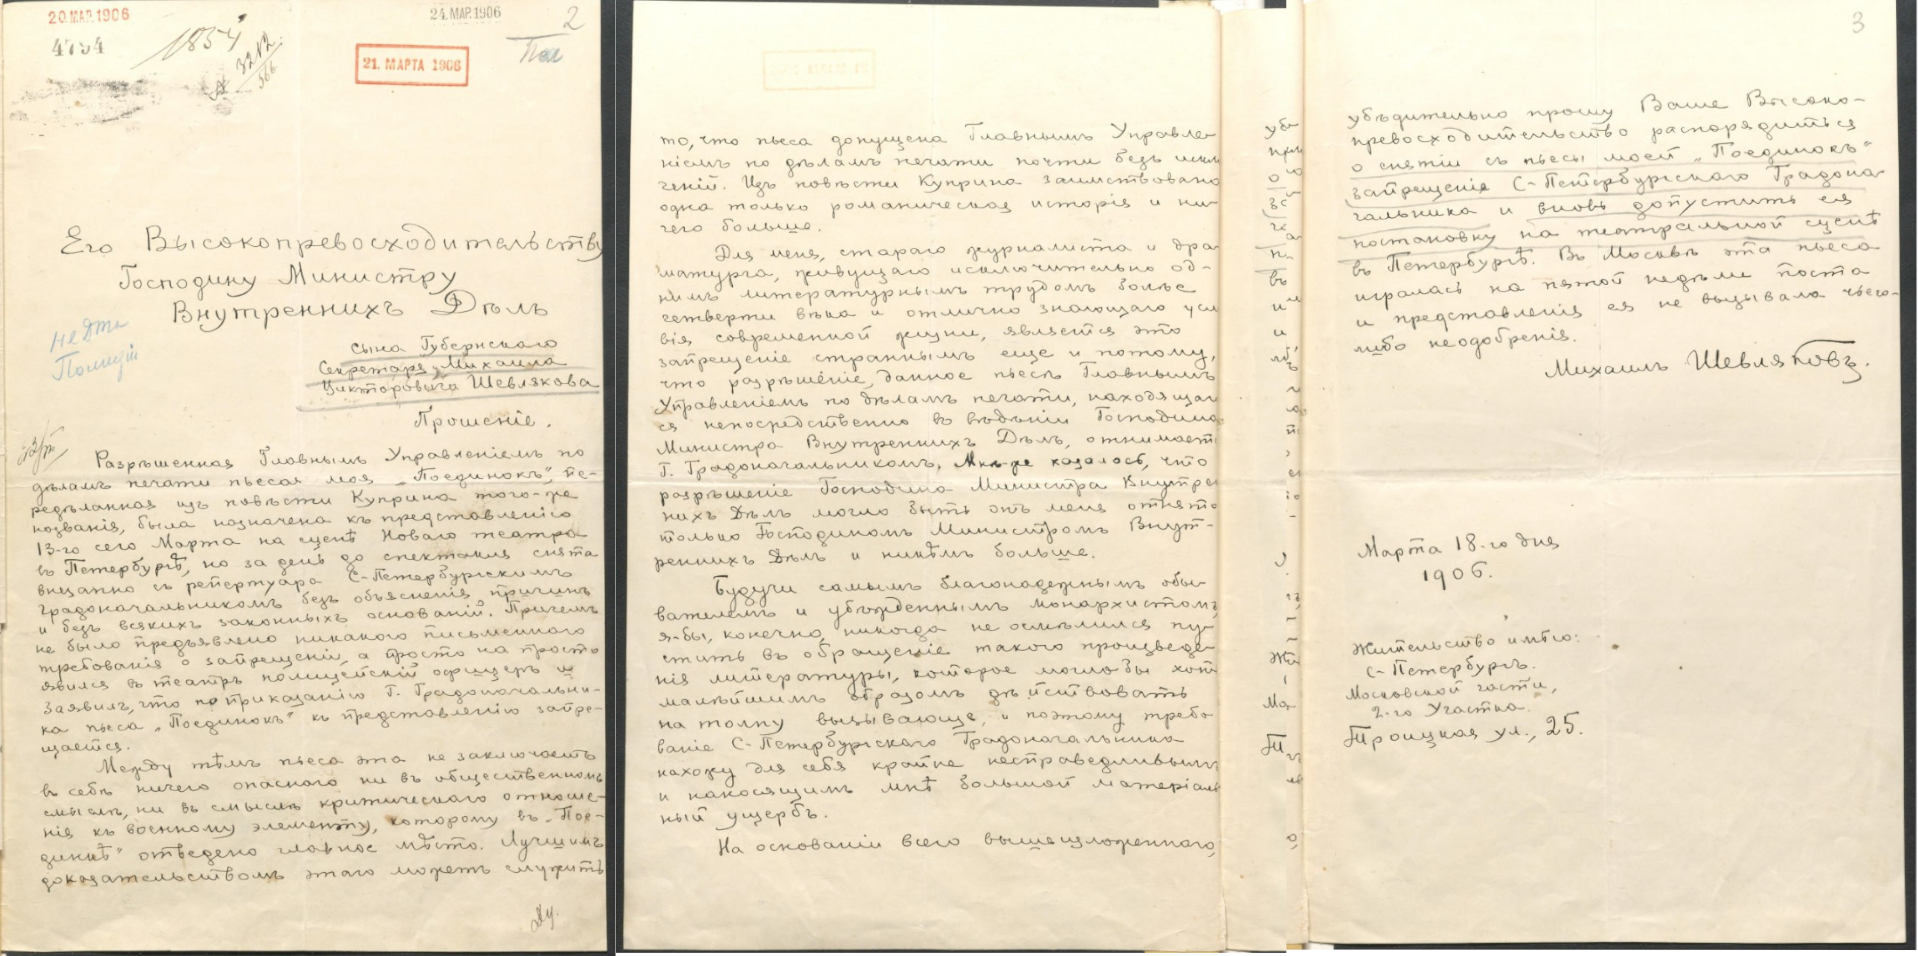 20 МАР. 1906
4794
1854
3212
566
24. МАР. 1906
2
21. МАРТА 1906
Его Высокопревосходительству
Господину Министру
Внутреннихъ Дѣлъ
Сына Губернскаго
Секретаря Михаила
Викторовича Шевлякова
Прошеніе.
Разрѣшенная Главнымъ Управленіемъ по
дѣламъ печати пьеса моя „Поединокъ“, пе-
редѣланная изъ повѣсти Куприна того-же
названія, была назначена къ представленію
13-го сего Марта на сценѣ Новаго театра
въ Петербургѣ, но за день до спектакля снята
внезапно съ репертуара С-Петербургскимъ
Градоначальникомъ безъ объясненія причинъ
и безъ всякихъ законныхъ основаній. Причемъ
не было предъявлено никакого письменнаго
требованія о запрещеніи, а просто на просто
явился въ театръ полицейскій офицеръ и
заявилъ, что по приказанію Г. Градоначальни-
ка пьеса „Поединокъ“ къ представленію запре-
щается.
Между тѣмъ пьеса эта не заключаетъ
въ себѣ ничего опаснаго ни въ общественномъ
смыслѣ, ни въ смыслѣ критическаго отноше-
нія къ военному элементу, которому въ „Пое-
динкѣ“ отведено главное мѣсто. Лучшимъ
доказательствомъ этаго можетъ служить
то, что пьеса допущена Главнымъ Управле-
ніемъ по дѣламъ печати почти безъ исклю
ченій. Изъ повѣсти Куприна заимствована
одна только романическая исторія и ни-
чего больше.
Для меня, стараго журналиста и дра
матурга, живущаго исключительно од-
нимъ литературнымъ трудомъ болѣе
четверти вѣка и отлично знающаго усл
вія современной жизни, является это
запрещеніе страннымъ еще и потому,
что разрѣшеніе, данное пьесѣ Главнымъ
Управленіемъ по дѣламъ печати, находящем
ся непосредственно въ вѣдѣніи Господина
Министра Внутреннихъ Дѣлъ, отнимается
Г. Градоначальникомъ. Мнѣ-же казалось, что
разрѣшеніе Господина Министра Внутрен
нихъ Дѣлъ могло быть отъ меня отнято
только Господиномъ Министромъ Внут-
реннихъ Дѣлъ и никѣмъ больше.
Будучи самымъ благонадежнымъ обы-
вателемъ и убѣжденнымъ монархистомъ,
я-бы, конечно, никогда не осмѣлился пу-
стить въ обращеніе такого произведе-
нія литературы, которое могло-бы хотя
малѣйшимъ образомъ дѣйствовать
на толпу вызывающе, и поэтому требо-
ваніе С-Петербургскаго Градоначальника
нахожу для себя крайне несправедливымъ
и наносящимъ мнѣ большой матеріаль
ный ущербъ.
На основаніи всего вышеизложеннаго,
3
убѣдительно прошу Ваше Высоко-
превосходительство распорядиться
о снятіи съ пьесы моей „Поединокъ“
запрещенія С-Петербургскаго Градона-
чальника и вновь допустить ея
постановку на театральной сценѣ
въ Петербургѣ. Въ Москвѣ эта пьеса
игралась на пятой недѣли поста
и представленія ея не вызывала чьего-
либо неодобренія.
Михаилъ Шевляковъ.
Марта 18-го дня
1906.
Жительство имѣю:
С-Петербургъ.
Московской части,
2-го Участка.
Троицкая ул., 25.